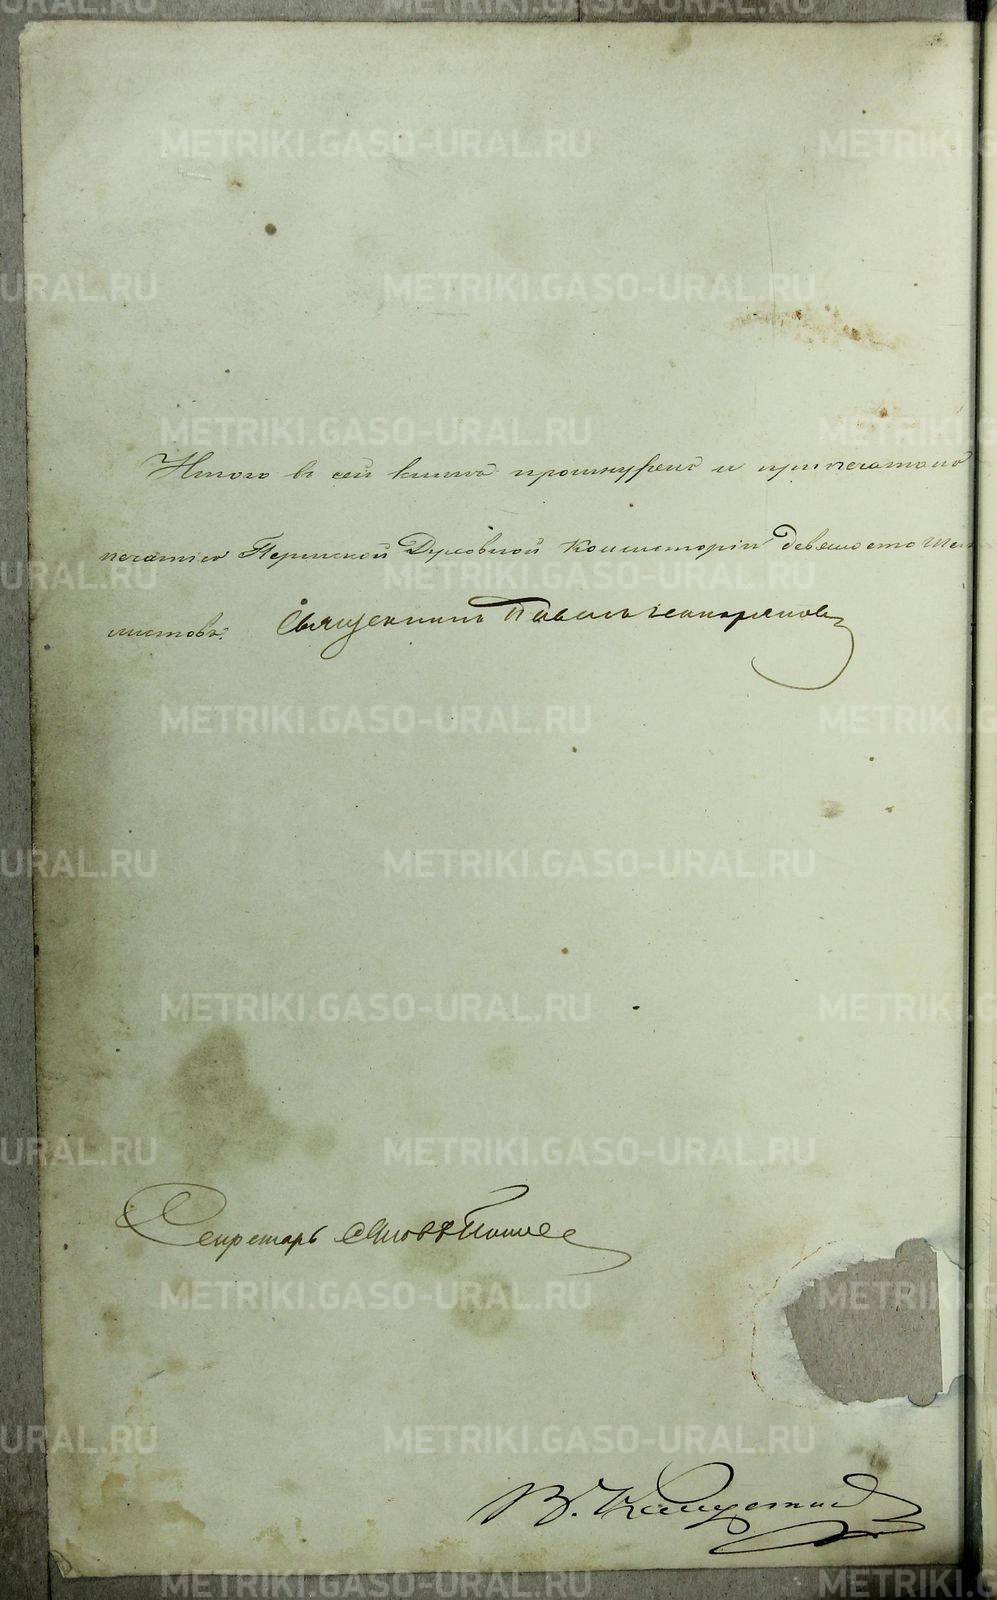 METRIKI.GASO-URAL.RU
Итого въ сей книгѣ прошнурено и припечатано
печатію Пермской Духовной Консисторіи девяносто шес
листовъ. Священникъ Павелъ
Секретарь
В. Капустинъ